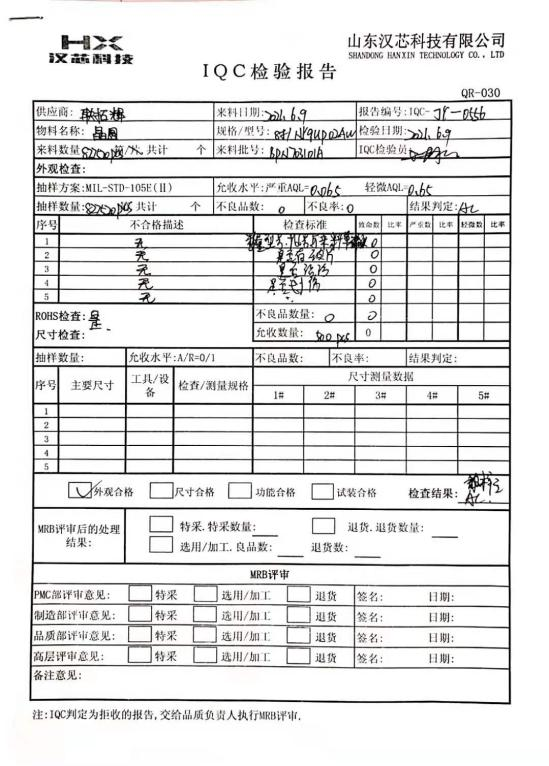 HX
汉芯科技
山东汉芯科技有限公司
SHANDONG HANXIN TECHNOLOGY CO., LTD
IQC检验报告
QR-030
供应商: 来料日期:2021.6.9 报告编号:IQC-JY-0556
物料名称:晶圆 规格/型号: 检验日期:2021.6.9
来料数量: 共计 个 来料批号: IQC检验员:
外观检查:
抽样方案:MIL-STD-105E(II) 允收水平:严重AQL=0.065 轻微AQL=0.65
抽样数量: 共计 个 不良品数: 0 不良率:0 结果判定:AC
序号 不合格描述 检查标准 致命数 比率 严重数 比率 轻微数 比率
1 无 0
2 无 0
3 无 0
4 无 0
5 无 0
ROHS检查:是 不良品数量: 0
尺寸检查: 允收数量: 500 pcs 0
抽样数量: 允收水平:A/R=0/1 不良品数: 不良率: 结果判定:
序号 主要尺寸 工具/设备 检查/测量规格 尺寸测量数据
1# 2# 3# 4# 5#
1
2
3
4
5
外观合格 尺寸合格 功能合格 试装合格 检查结果: AC
MRB评审后的处理结果: 特采.特采数量: 退货.退货数量:
选用/加工.良品数: 退货数:
MRB评审
PMC部评审意见: 特采 选用/加工 退货 签名: 日期:
制造部评审意见: 特采 选用/加工 退货 签名: 日期:
品质部评审意见: 特采 选用/加工 退货 签名: 日期:
高层评审意见: 特采 选用/加工 退货 签名: 日期:
备注意见:
注:IQC判定为拒收的报告,交给品质负责人执行MRB评审.